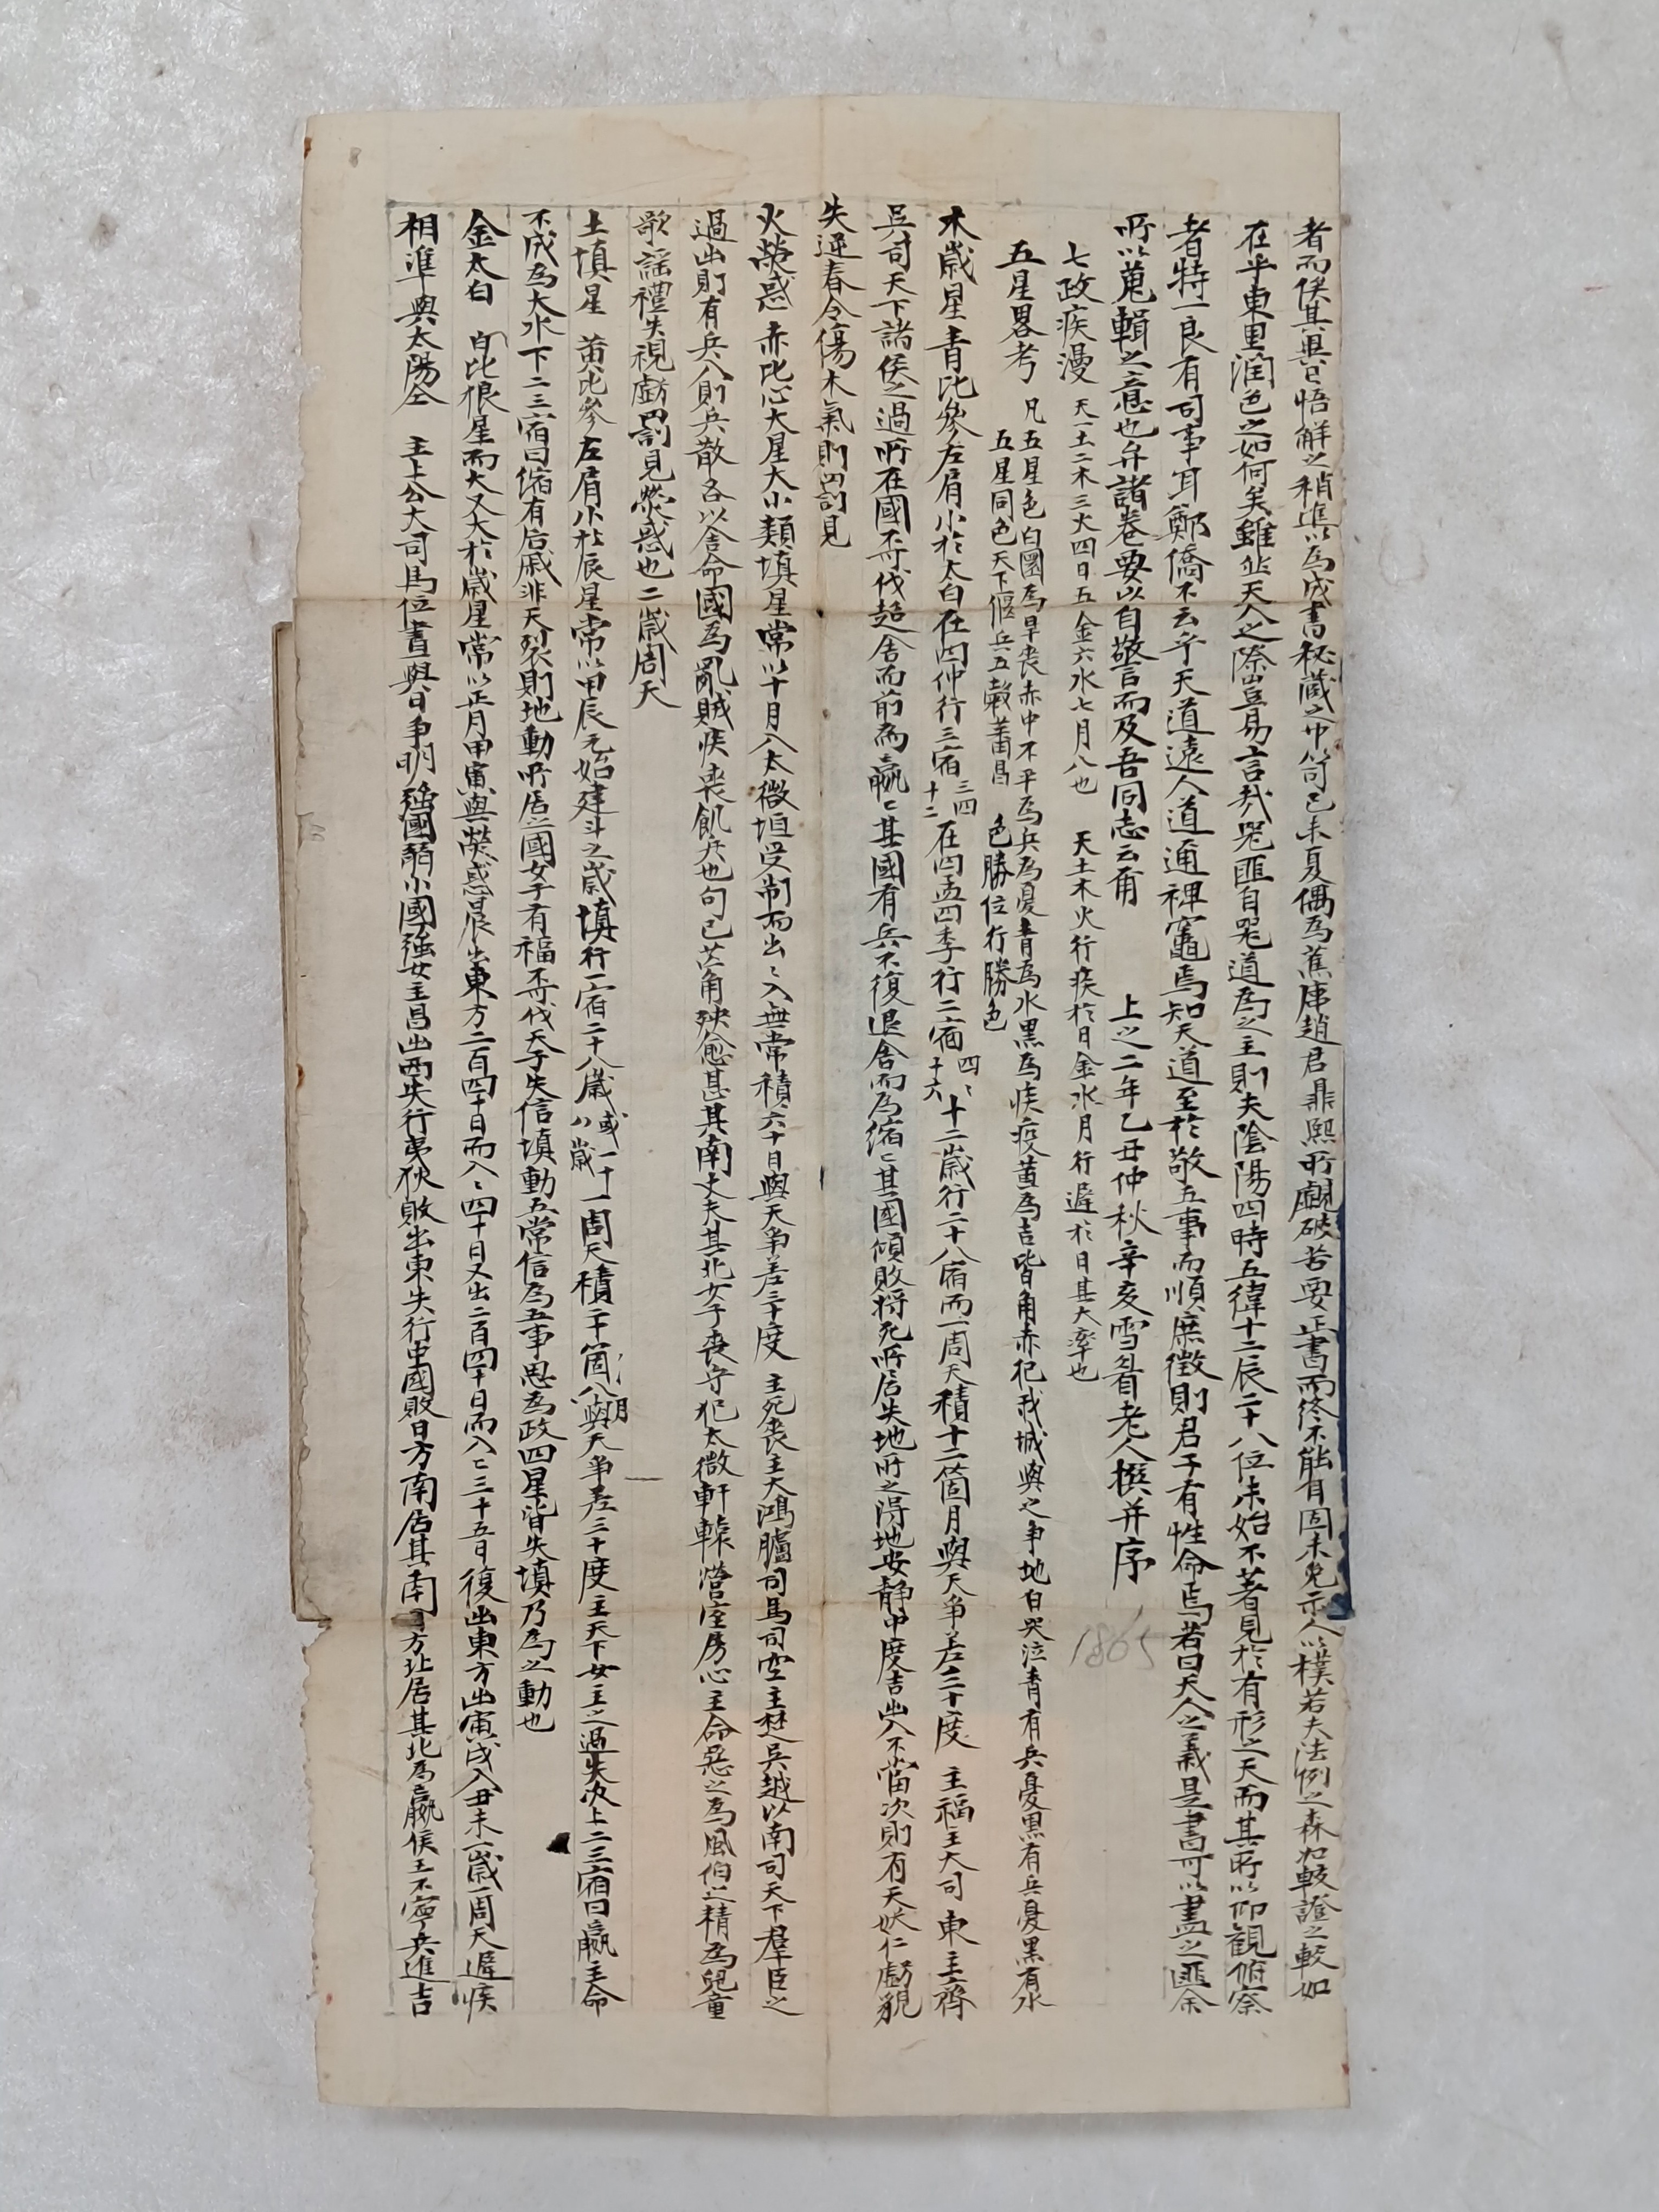 者而俟其眞已悟解之稍進以爲成書秘藏之巾笥己未夏偶爲蕉庫趙君鼎熙所覰破苦要正書而終不能自固未免示人以樸若夫法例之森如較證之較如
在乎東里潤色之如何矣雖然天人之際豈易言哉器匪自器道爲之主則夫陰陽四時五緯十二辰二十八位未始不著見於有形之天而其所以仰觀俯察
者特一良有司事耳鄭僑不云乎天道遠人道邇裨竈焉知天道至於敬五事而順庶徵則君子有性命焉者曰天人之義是書可以盡之匪余
所以蒐輯之意也弁諸卷要以自警言而及吾同志云爾 上之二年乙丑仲秋辛亥雪眉老人撰并序
1865
七政疾漫 天一土二木三火四日五金六水七月八也 天土木火行疾於日金水月行遲於日其大率也
五星畧考 凡五星色白圜爲旱喪赤中不平爲兵爲憂青爲水黑爲疾疫黃爲吉皆角赤犯我城與之爭地白哭泣青有兵憂黑有兵憂黑有水
五星同色天下偃兵五穀蕃昌 色勝位行勝色
木歲星青比參左肩小於太白在四仲行三宿三四十二在四孟四季行二宿四二十六十二歲行二十八宿而一周天積十二箇月與天爭差三十度 主福主大司東主齊
吳司天下諸侯之過所在國不可伐超舍而前爲嬴ミ其國有兵不復退舍而爲縮ミ其國傾敗將死所居失地所之得地安靜中度吉出入不當次則有天妖仁虧貌
失逆春令傷木氣則罰見
火熒惑 赤比心大星大小類塡星常以十月入太微垣受制而出ミ入無常積六十日與天爭差三十度 主死喪主大鴻臚司馬司空主楚吳越以南司天下羣臣之
過出則有兵入則兵散各以舍命國爲亂賊疾喪飢兵也句已芒角殃愈甚其南丈夫其北女子喪守犯太微軒轅營室房心主命惡之爲風伯之精爲兒童
歌謠禮失視虧罰見熒惑也二歲周天
土塡星 黃比參左肩小於辰星常以甲辰元始建斗之歲塡行一宿二十八歲或一十八歲一周天積二十箇八月與天爭差二十度主天下女主之過失次上二三宿曰嬴主命
不成爲大水下二三宿曰縮有后戚非天裂則地動所居之國女子有福不可伐天子失信塡動五常信爲五事思爲政四星皆失塡乃爲之動也
金太白 白比狼星而大又大於歲星常以正月甲寅與熒惑晨出東方二百四十日而入ミ四十日又出二百四十日而入ミ三十五日復出東方出寅戌入丑未一歲一周天遲疾
相準與太陽仝 主上公大司馬位晝與日爭明强國弱小國强女主昌出西失行夷狄敗出東失行中國敗日方南居其南日方北居其北爲嬴侯王不寧兵進吉